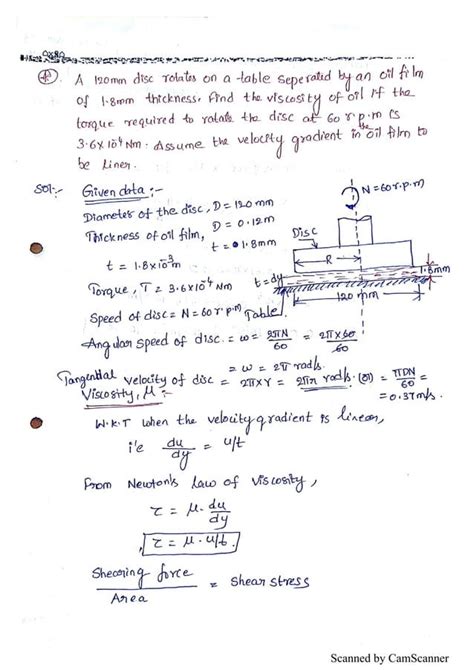 A 120mm disc rotates on a table seperated by an oil film
of 1.8mm thickness. Find the viscosity of oil if the
torque required to rotate the disc at 60 r.p.m is
3.6x10⁴ Nm. Assume the velocity gradient in the oil film to
be linear.
Sol:- Given data :-
Diameter of the disc, D = 120mm
D = 0.12m
Thickness of oil film,
t = 1.8mm
t = 1.8x10⁻³m
Torque, T = 3.6x10⁴ Nm
Speed of disc = N = 60 r.p.m
Angular speed of disc = ω = 2πN/60 = 2πx60/60
= ω = 2π rad/s.
Tangential velocity of disc = 2πxr = 2πr rad/s. (or) = πDN/60 =
= 0.37m/s.
N=60r.p.m
Disc
R
t=dy
1.8mm
120mm
Table
Viscosity, μ :-
W.K.T when the velocity gradient is linear,
i'e du/dy = u/t
From Newton's Law of Viscosity,
τ = μ. du/dy
τ = μ. u/t.
Shearing force/Area = Shear stress
Scanned by CamScanner